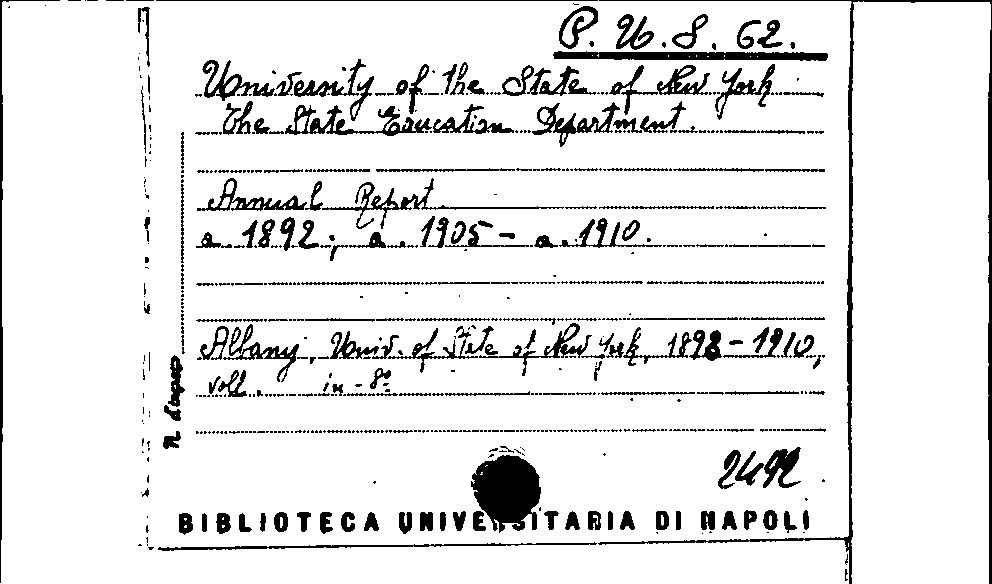 P. U. S. 62.
University of the State of New York
The State Education Department.
Annual Report.
a. 1892; a. 1905 - a. 1910.
Albany, Univ. of State of New York, 1892 - 1910,
voll. in-8º
N. d'ingresso
2492
BIBLIOTECA UNIVERSITARIA DI NAPOLI